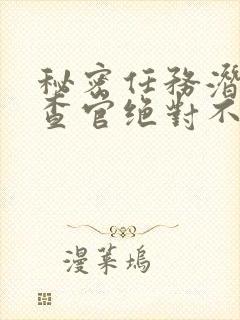 秘密任務潛
查官絕對不
漫菓塢